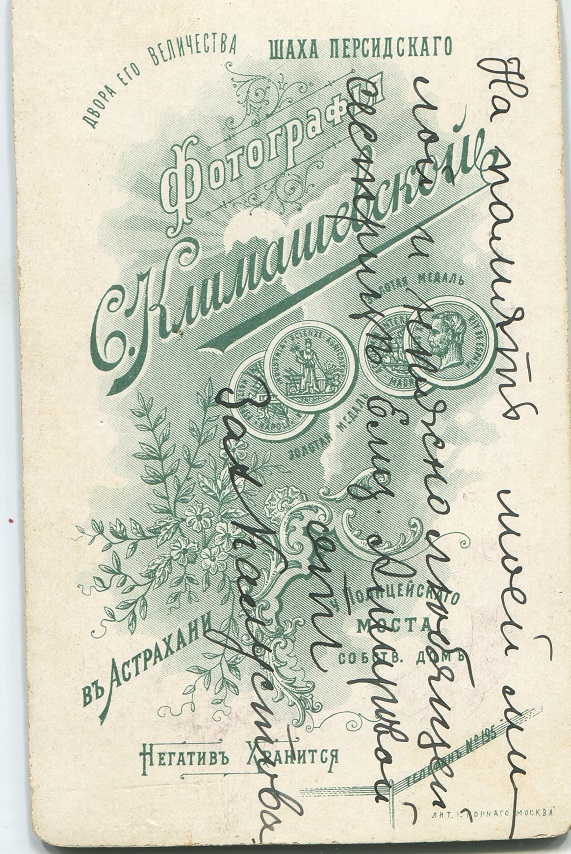 ДВОРА ЕГО ВЕЛИЧЕСТВА ШАХА ПЕРСИДСКАГО
Фотографія
С. Климашевской
ЗОЛОТАЯ МЕДАЛЬ
ЗОЛОТАЯ МЕДАЛЬ
ВЪ АСТРАХАНИ
У ПОЛИЦЕЙСКАГО
МОСТА
СОБСТВ. ДОМЪ
НЕГАТИВЪ ХРАНИТСЯ
ТЕЛЕФОНЪ № 195
ЛИТ. ПОКОРНАГО МОСКВА
На память моей ми-
лой и прясно любящей
сестрицѣ Елиз. Амировой
отъ
Зак Капустова